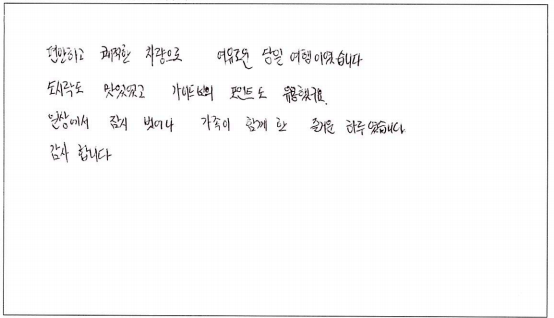 편안하고 쾌적한 차량으로 여유로운 당일 여행이였습니다
도시락도 맛있었고 가이드님의 멘트도 유용했구요.
일상에서 잠시 벗어나 가족이 함께 한 즐거운 하루였습니다
감사 합니다